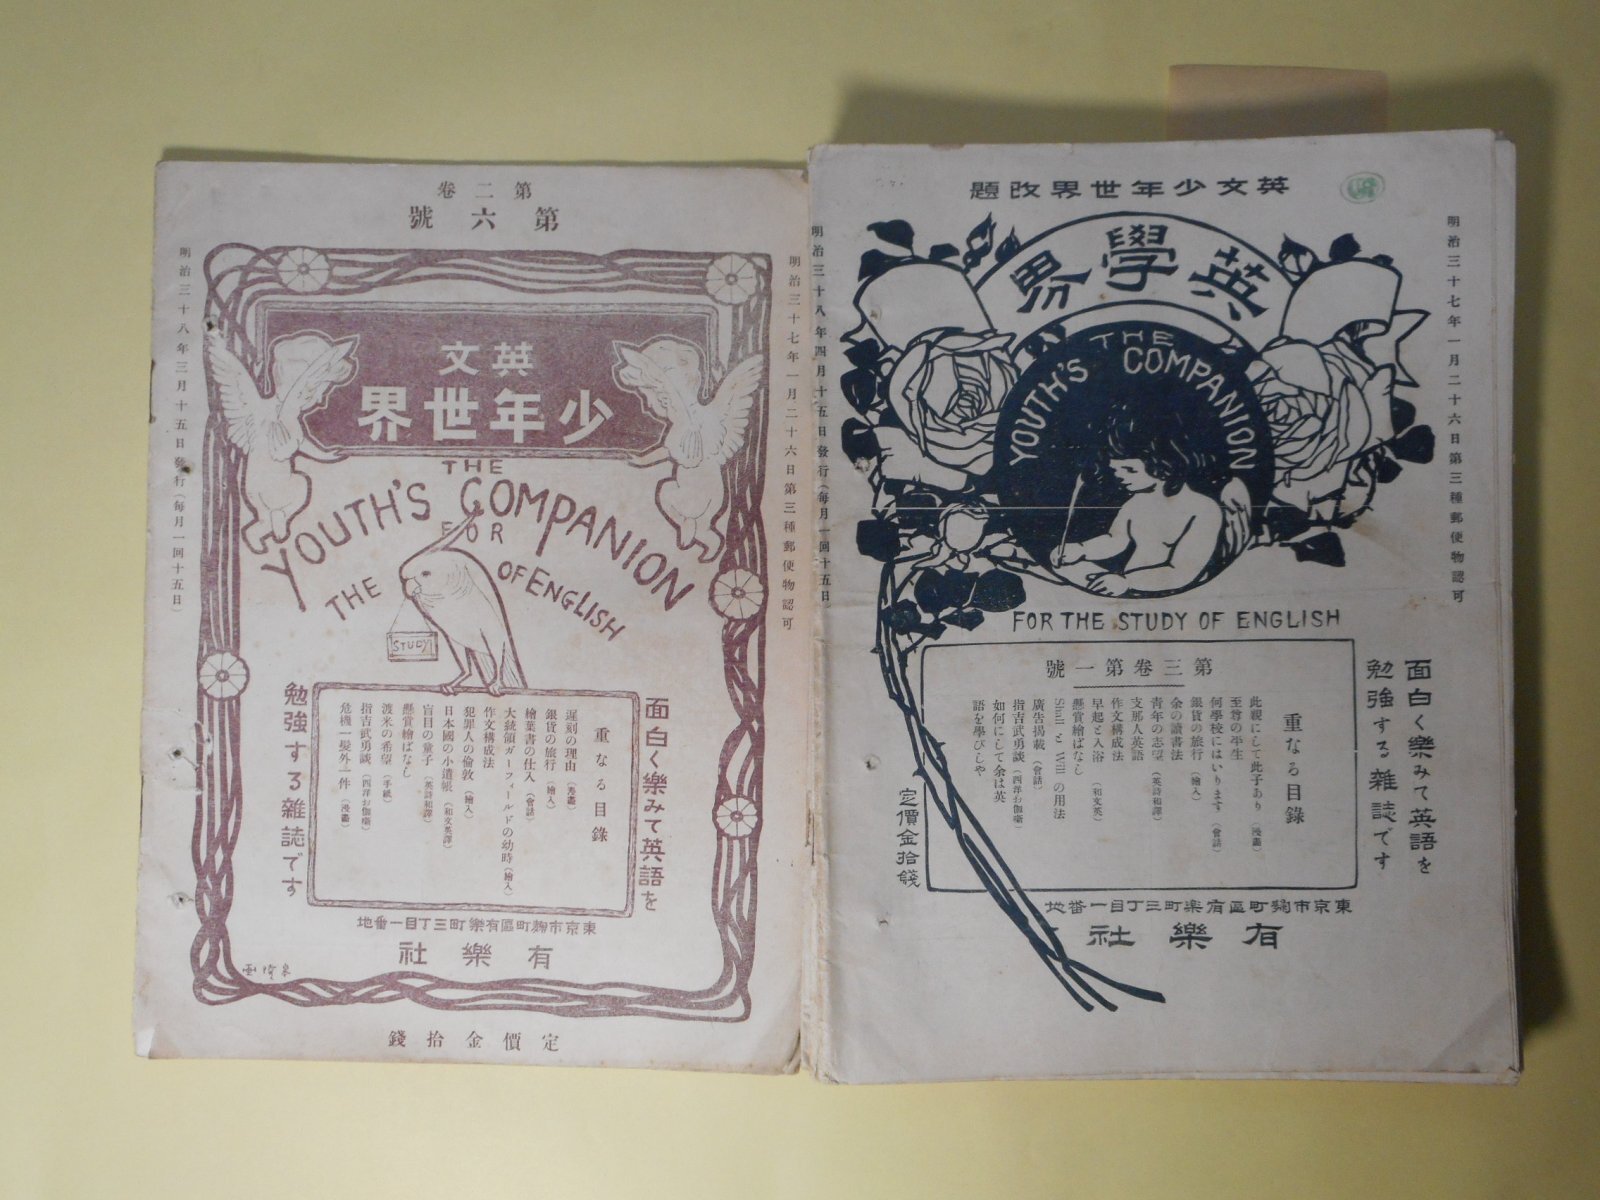 第二卷
第六號
明治三十七年一月二十六日第三種郵便物認可
明治三十八年三月十五日發行(每月一回十五日)
英文
少年世界
THE
YOUTH'S COMPANION
FOR
THE
STUDY
OF ENGLISH
面白く樂みて英語を
勉強する雜誌です
重なる目錄
遲刻の理由
銀貨の旅行(繪入)
繪葉書の仕入(會話)
大統領ガーフィールドの幼時(繪入)
作文構成法
犯罪人の倫敦(繪入)
日本國の小遣帳(和文英譯)
盲目の童子(英詩和譯)
懸賞繪ばなし
渡米の希望(手紙)
指吉武勇談(西洋お伽噺)
危機一髮外一件(漫畫)
東京市麴町區有樂町三丁目一番地
有樂社
定價金拾錢
英文少年世界改題
英學界
明治三十七年一月二十六日第三種郵便物認可
明治三十八年四月十五日發行(每月一回十五日)
THE
YOUTH'S COMPANION
FOR THE STUDY OF ENGLISH
面白く樂みて英語を
勉強する雜誌です
第三卷第一號
重なる目錄
此親にして此子あり(漫畫)
至尊の半生
何學校にはいります(會話)
銀貨の旅行(繪入)
余の讀書法
青年の志望(英詩和譯)
支那人英語
作文構成法
早起と入浴(和文英)
懸賞繪ばなし
Shall と Will の用法
廣告揭載(會話)
指吉武勇談(西洋お伽噺)
如何にして余は英
語を學びしや
定價金拾錢
東京市麴町區有樂町三丁目一番地
有樂社